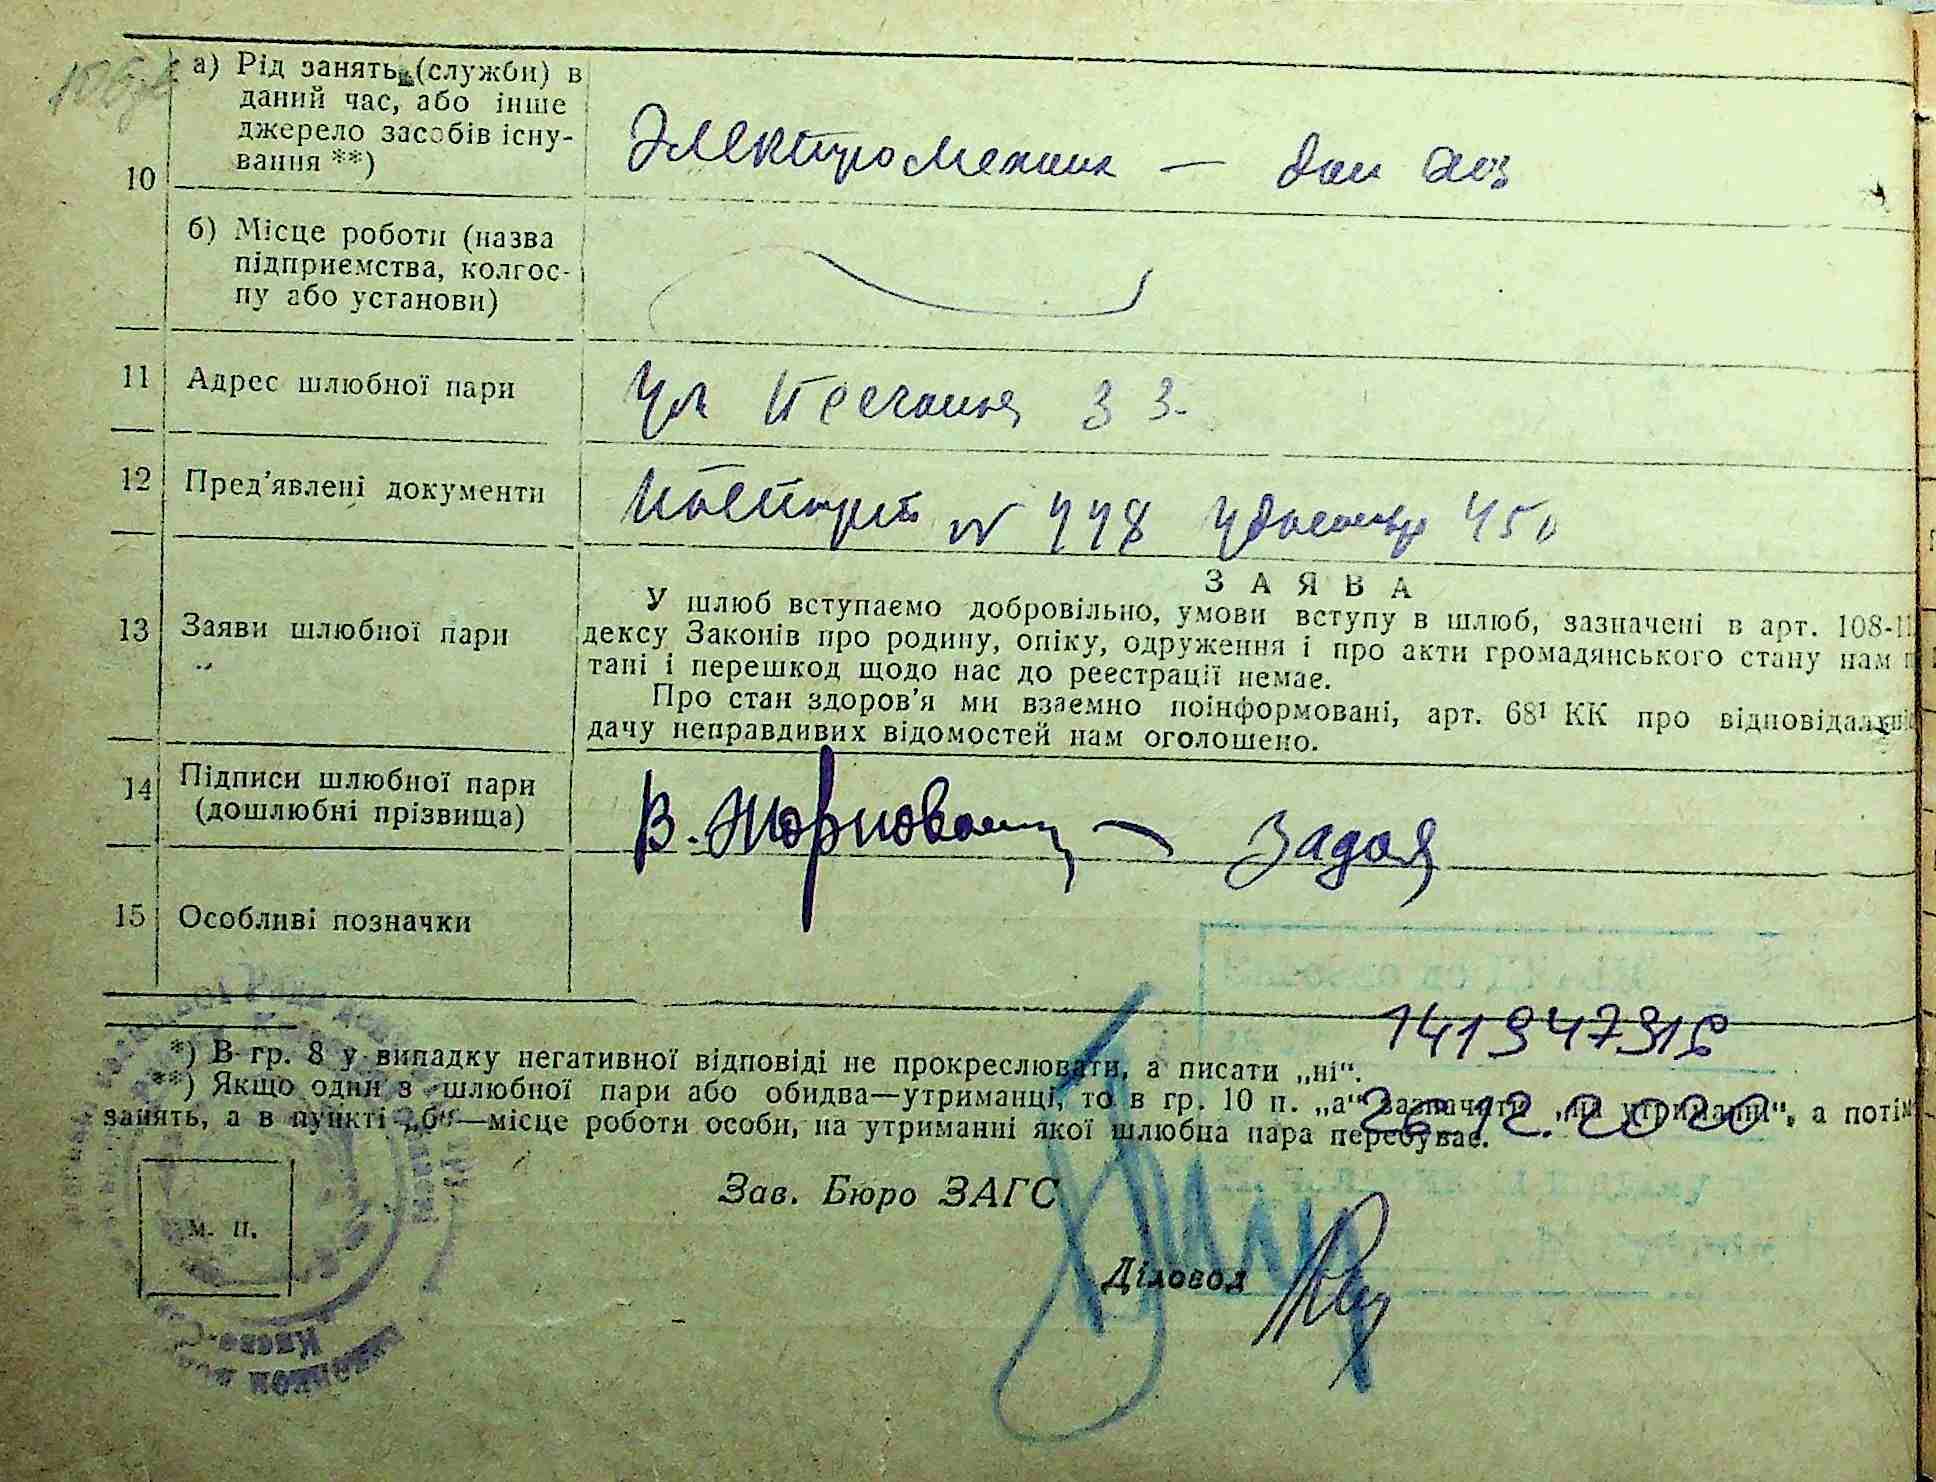 10
а) Рід занять (служби) в
даний час, або інше
джерело засобів існу-
вання **)
Электромеханик — дом хоз
б) Місце роботи (назва
підприємства, колгос-
пу або установи)
11 Адрес шлюбної пари
Ул Песчаная 33.
12 Пред'явлені документи
Паспорт N 778 удостовер 450
13 Заяви шлюбної пари
ЗАЯВА
У шлюб вступаємо добровільно, умови вступу в шлюб, зазначені в арт. 108-
дексу Законів про родину, опіку, одруження і про акти громадянського стану нам
тані і перешкод щодо нас до реєстрації немає.
Про стан здоров'я ми взаємно поінформовані, арт. 68¹ КК про
дачу неправдивих відомостей нам оголошено.
14 Підписи шлюбної пари
(дошлюбні прізвища)
В. Задая
15 Особливі позначки
*) В гр. 8 у випадку негативної відповіді не прокреслювати, а писати „ні“.
**) Якщо один з шлюбної пари або обидва—утриманці, то в гр. 10 п. „а“ зазначати „на утриманні“, а потім
занять, а в пункті „б“—місце роботи особи, на утриманні якої шлюбна пара перебуває.
26.12.2020
М. П.
Зав. Бюро ЗАГС
Діловод